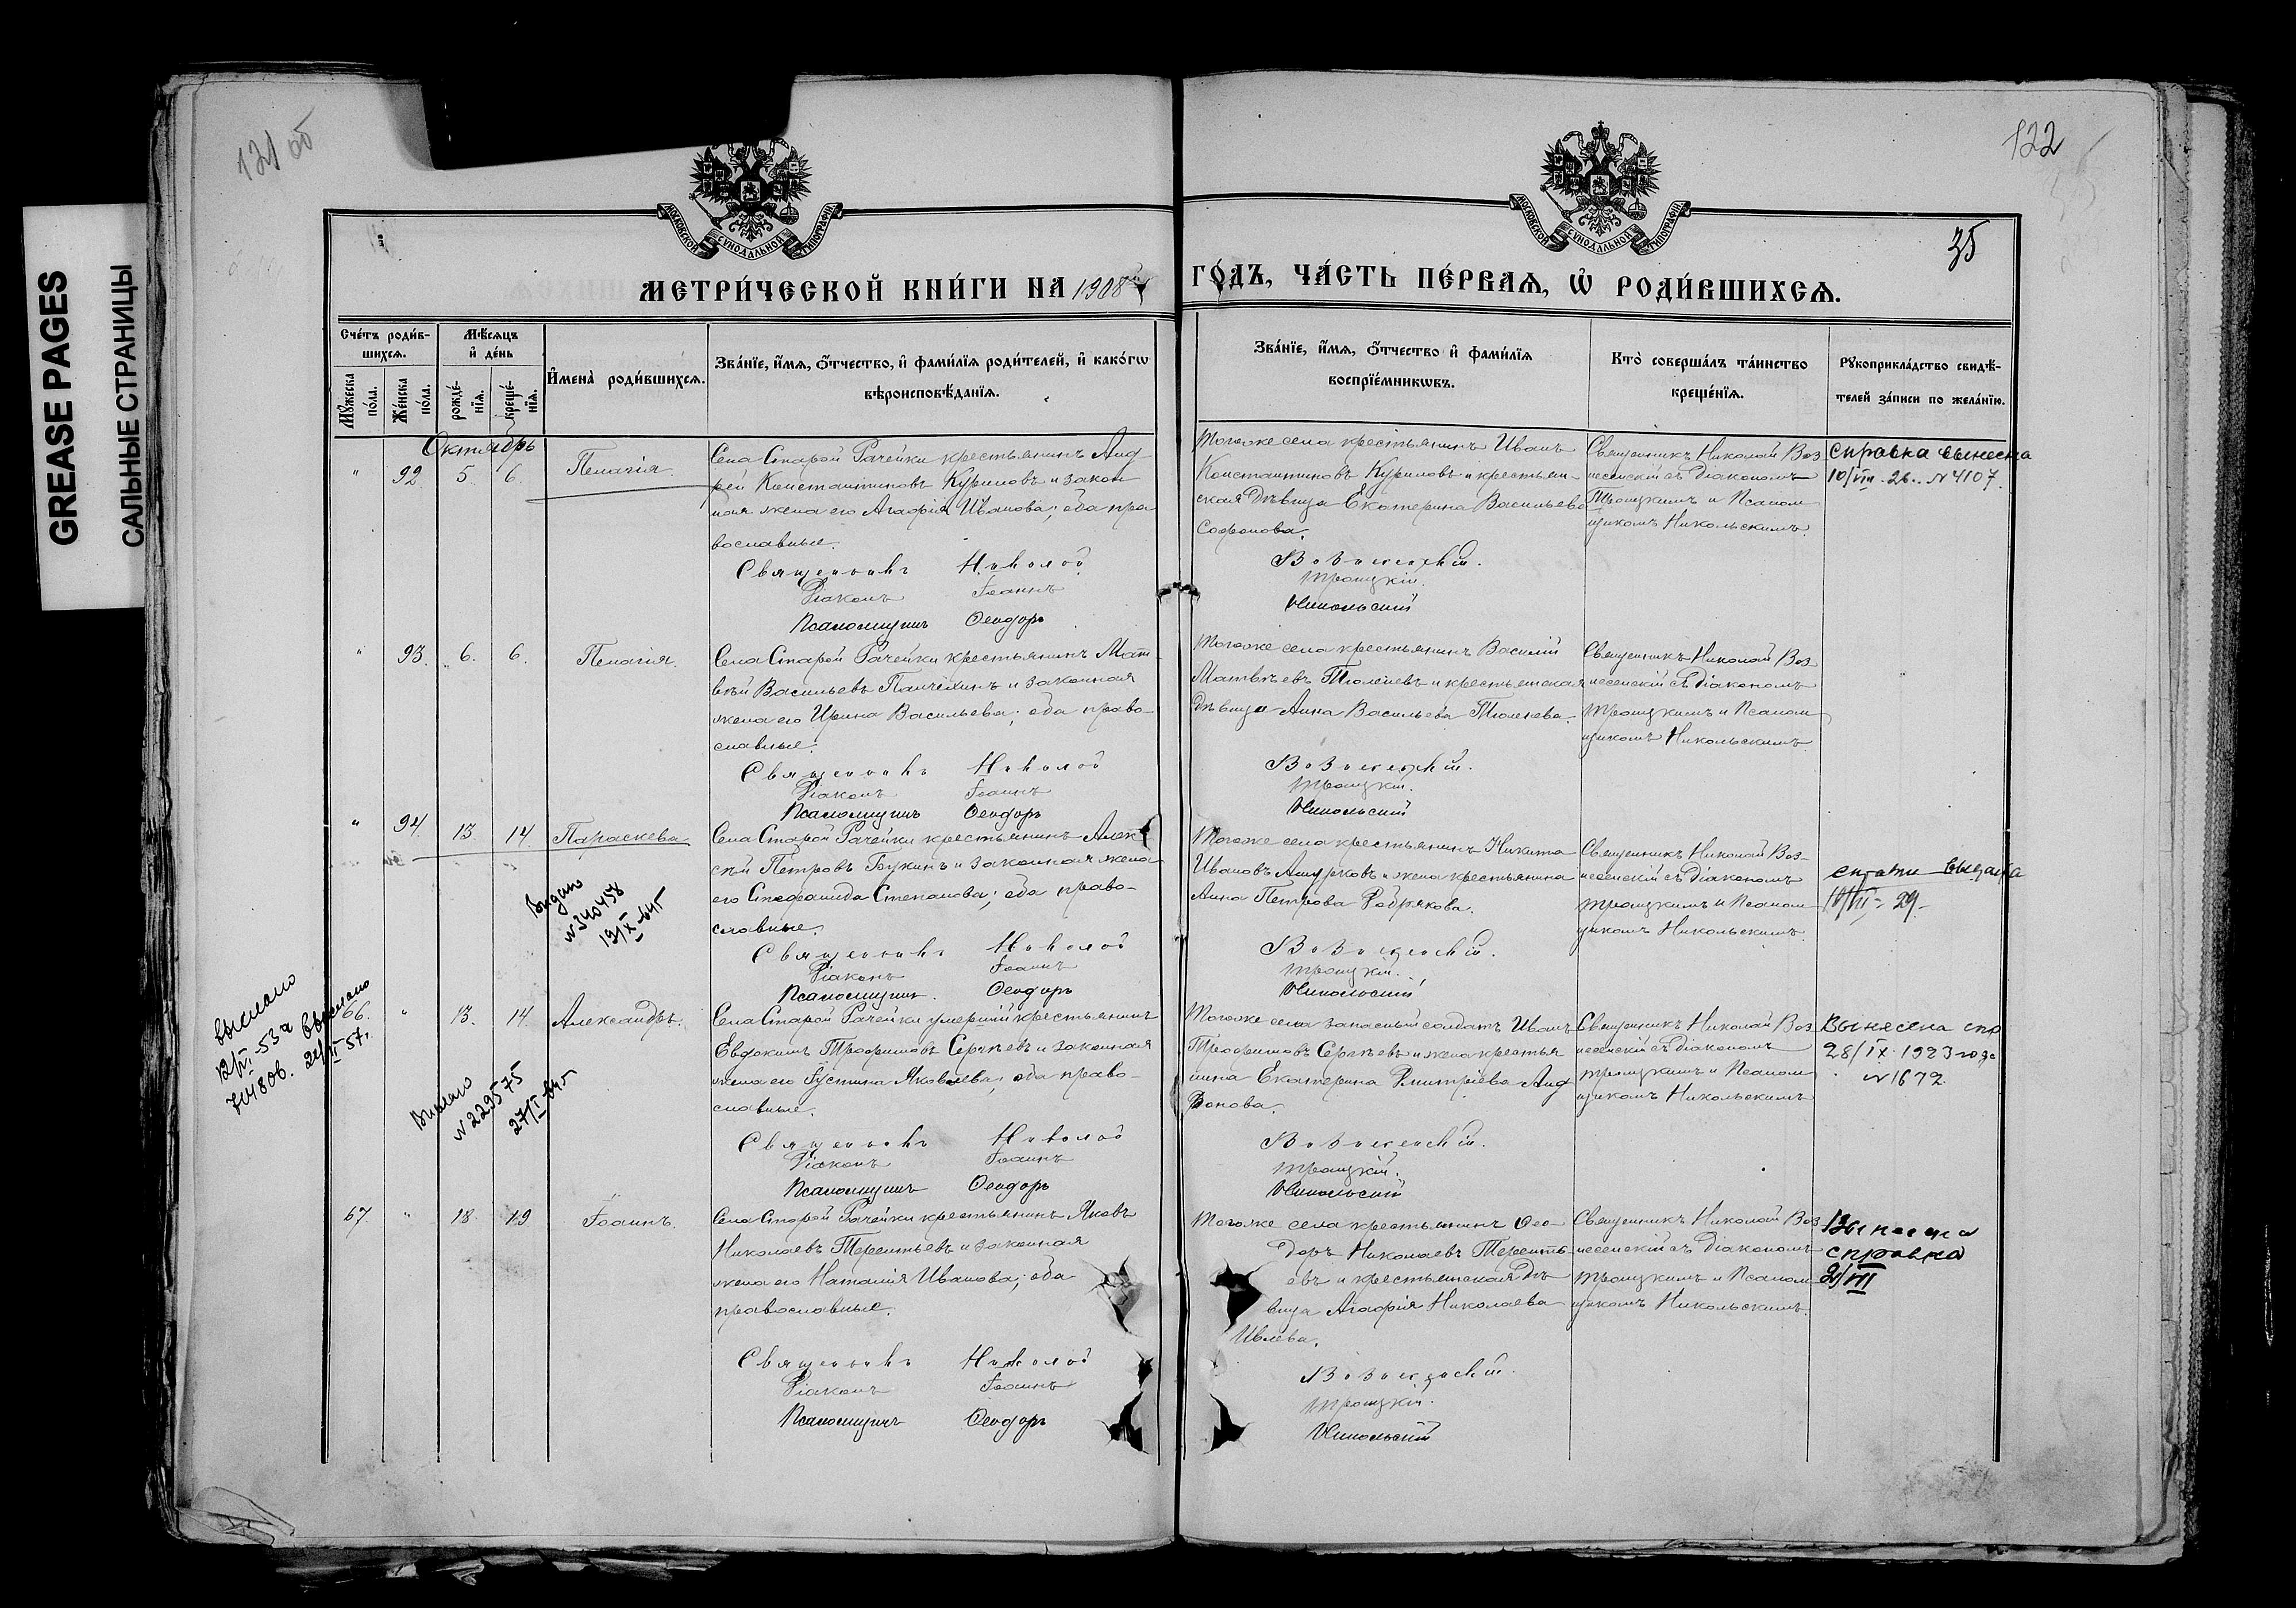 GREASE PAGES
САЛЬНЫЕ СТРАНИЦЫ
121 об
122
35
МОСКОВСКОЙ СѴНОДАЛЬНОЙ ТИПОГРАФІИ
МОСКОВСКОЙ СѴНОДАЛЬНОЙ ТИПОГРАФІИ
МЕТРИ́ЧЕСКОЙ КНИ́ГИ НА 1908
ГО́ДЪ, ЧА́СТЬ ПЕ́РВАѦ, Ѡ҆ РОДИ́ВШИХСѦ.
Сче́тъ роди́в-
шихсѧ.
Мꙋ́жеска по́ла.
Же́нска по́ла.
Мѣ́сѧцъ
и҆ де́нь
рожде́-
нїѧ.
креще́-
нїѧ.
И҆мена̀ роди́вшихсѧ.
Зва́нїе, и҆́мѧ, ѻ҆́тчество, и҆ фами́лїѧ роди́телей, и҆ како́гѡ
вѣроисповѣ́данїѧ.
Зва́нїе, и҆́мѧ, ѻ҆́тчество и҆ фами́лїѧ
воспрїе́мникѡвъ.
Кто̀ соверша́лъ та́инство
креще́нїѧ.
Рꙋкоприкла́дство свидѣ́-
телей за́писи по жела́нїю.
Октябрь
" 92 5. 6. Пелагія.
Села Старой Рачейки крестьянинъ Анд
рей Константиновъ Куриловъ и закон
ная жена его Агафія Иванова; оба пра
вославные.
Священникъ Николай
Діаконъ Іоаннъ
Псаломщикъ Ѳеодоръ
Тогоже села крестьянинъ Иванъ
Константиновъ Куриловъ и крестьян-
ская дѣвица Екатерина Васильева
Софронова.
Вознесенскій.
Троицкій.
Никольский
Священникъ Николай Воз
несенскій съ діакономъ
Троицкимъ и Псалом
щикомъ Никольскимъ.
Справка вынесена
10/VIII. 26. N 4107.
" 93. 6. 6. Пелагія.
Села Старой Рачейки крестьянинъ Мат-
вѣй Васильевъ и законная
жена его Ирина Васильева; оба право-
славные.
Священникъ Николай
Діаконъ Іоаннъ
Псаломщикъ Ѳеодоръ
Тогоже села крестьянинъ Василій
Матвѣевъ Тюленевъ и крестьянская
дѣвица Анна Васильева Тюленева.
Вознесенскій.
Троицкій.
Никольский
Священникъ Николай Воз
несенскій съ діакономъ
Троицкимъ и Псалом
щикомъ Никольскимъ
" 94. 13 14. Параскева
Села Старой Рачейки крестьянинъ Алек
сѣй Петровъ и законная жена
его Стефанида Степанова; оба право-
славные.
Священникъ Николай
Діаконъ Іоаннъ
Псаломщикъ. Ѳеодоръ
Тогоже села крестьянинъ Никита
Ивановъ и жена крестьянина
Анна Петрова
Вознесенскій.
Троицкій.
Никольский
Священникъ Николай Воз-
несенскій съ діакономъ
Троицкимъ и Псалом
щикомъ Никольскимъ.
29
Выдано
N 340458
19/X-645
выслано
12/VI-53 г
714806.
Выслано
21/II 57г.
66. " 13. 14 Александръ.
Села Старой Рачейки умершій крестьянинъ
Евдокимъ Трофимовъ Сергѣевъ и законная
жена его Іустина Яковлева; оба право-
славные.
Священникъ Николай
Діаконъ Іоаннъ
Псаломщикъ Ѳеодоръ
Тогоже села запасный солдатъ Иванъ
Трофимовъ Сергѣевъ и жена крестья
нина Екатерина Дмитріева Анд
ронова.
Вознесенскій.
Троицкій.
Никольский
Священникъ Николай Воз
несенскій съ діакономъ
Троицкимъ и Псалом
щикомъ Никольскимъ
Вынесена спр
28/IX. 1923 года
N 1672.
Выслано
N 229575
27/I-645
67. " 18. 19 Іоаннъ.
Села Старой Рачейки крестьянинъ Яковъ
Николаевъ Терентьевъ и законная
жена его Наталія Иванова; оба
православные.
Священникъ Николай
Діаконъ Іоаннъ
Псаломщикъ Ѳеодоръ
Тогоже села крестьянинъ Ѳео-
доръ Николаевъ Теренть-
евъ и крестьянская дѣ
вица Агафія Николаева
Ивлева.
Вознесенскій.
Троицкій.
Никольский
Священникъ Николай Воз
несенскій съ діакономъ
Троицкимъ и Псалом
щикомъ Никольскимъ.
Вынесена
справка
2/VII